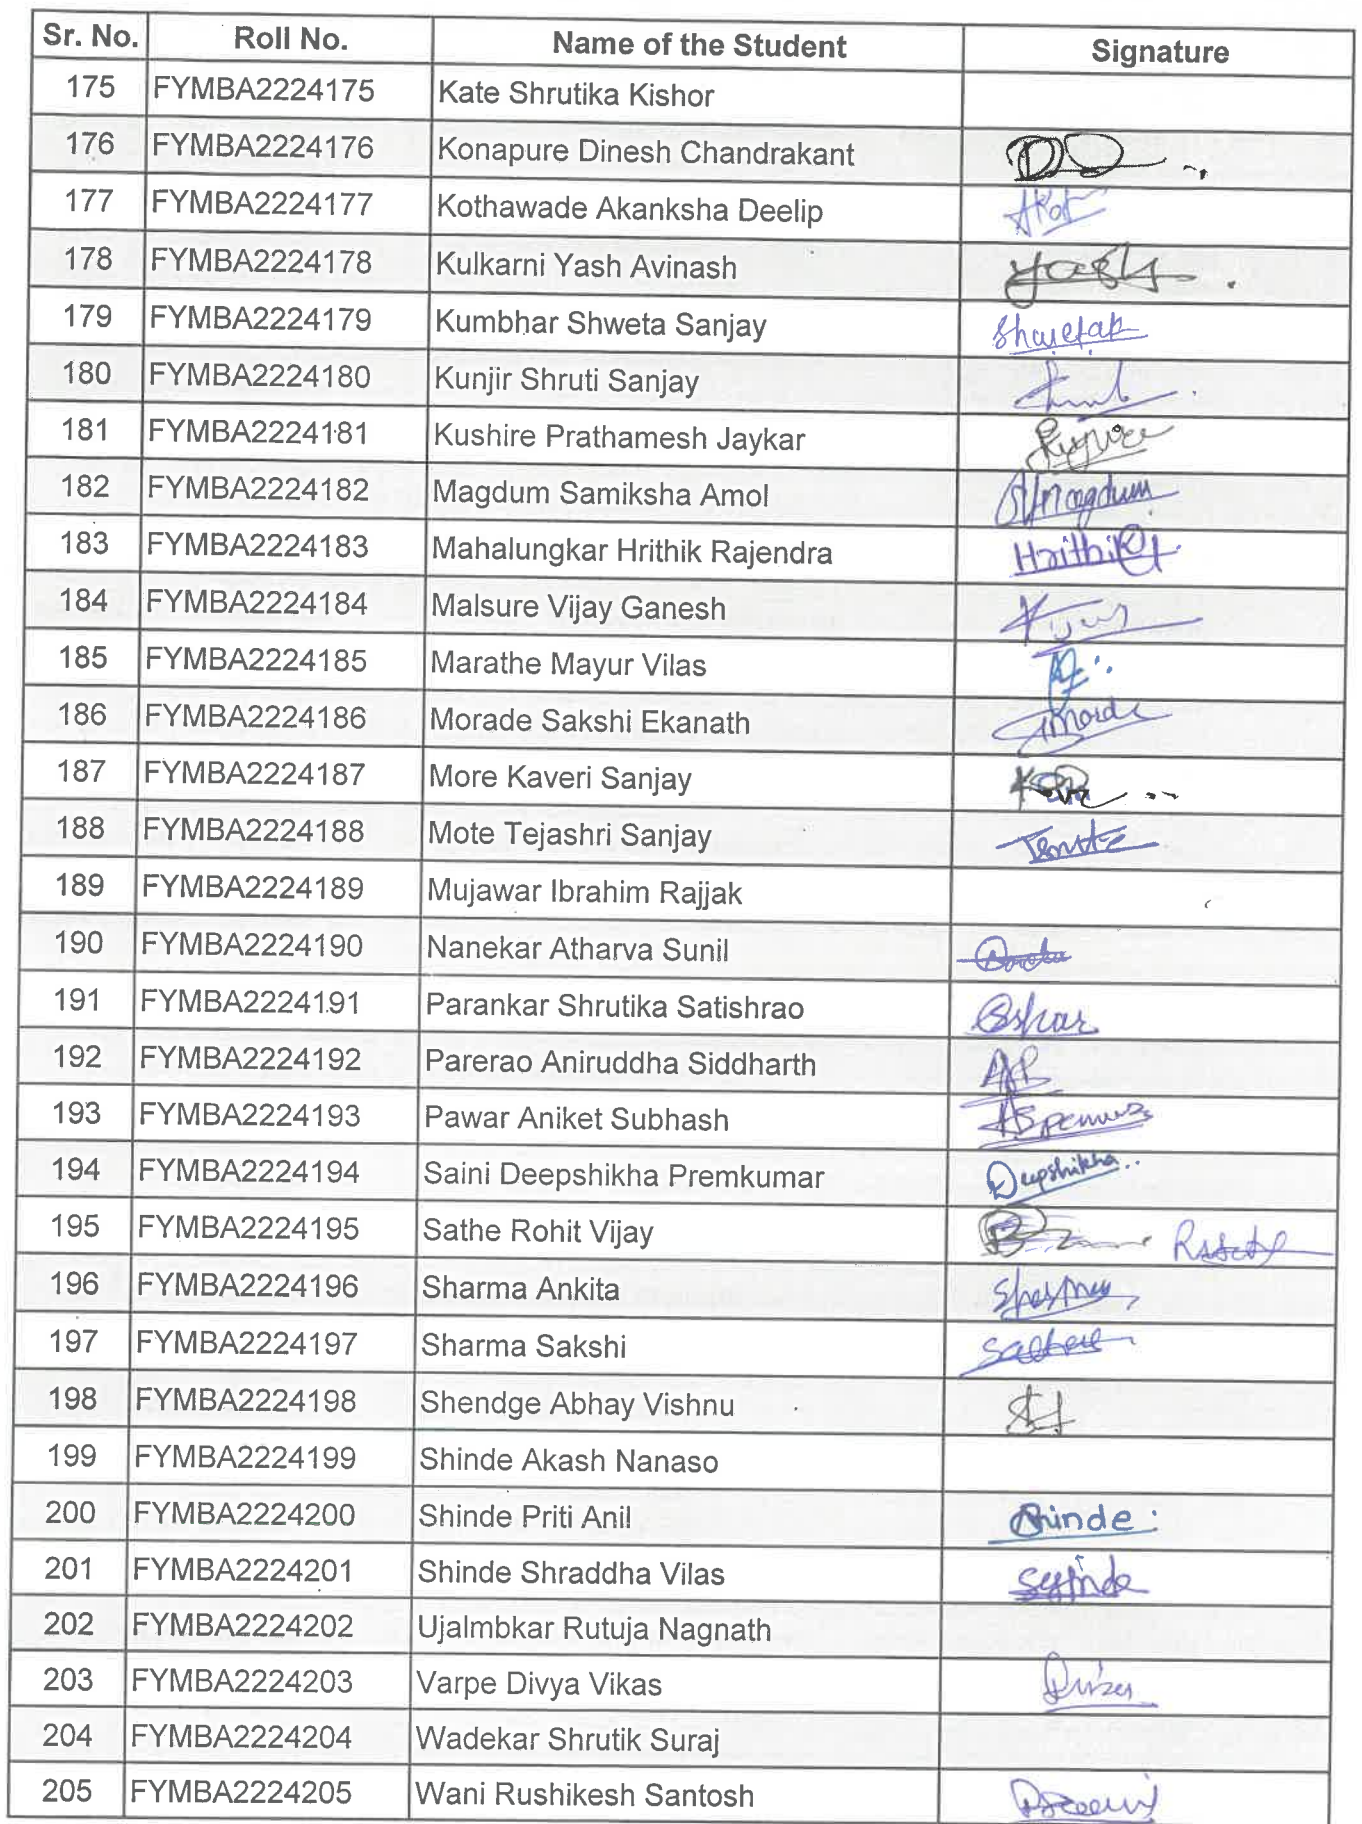 Sr. No. Roll No. Name of the Student Signature
175 FYMBA2224175 Kate Shrutika Kishor
176 FYMBA2224176 Konapure Dinesh Chandrakant
177 FYMBA2224177 Kothawade Akanksha Deelip
178 FYMBA2224178 Kulkarni Yash Avinash Yash
179 FYMBA2224179 Kumbhar Shweta Sanjay
180 FYMBA2224180 Kunjir Shruti Sanjay
181 FYMBA2224181 Kushire Prathamesh Jaykar
182 FYMBA2224182 Magdum Samiksha Amol
183 FYMBA2224183 Mahalungkar Hrithik Rajendra Hrithik
184 FYMBA2224184 Malsure Vijay Ganesh
185 FYMBA2224185 Marathe Mayur Vilas
186 FYMBA2224186 Morade Sakshi Ekanath
187 FYMBA2224187 More Kaveri Sanjay
188 FYMBA2224188 Mote Tejashri Sanjay
189 FYMBA2224189 Mujawar Ibrahim Rajjak
190 FYMBA2224190 Nanekar Atharva Sunil
191 FYMBA2224191 Parankar Shrutika Satishrao
192 FYMBA2224192 Parerao Aniruddha Siddharth
193 FYMBA2224193 Pawar Aniket Subhash
194 FYMBA2224194 Saini Deepshikha Premkumar Deepshikha
195 FYMBA2224195 Sathe Rohit Vijay
196 FYMBA2224196 Sharma Ankita
197 FYMBA2224197 Sharma Sakshi
198 FYMBA2224198 Shendge Abhay Vishnu
199 FYMBA2224199 Shinde Akash Nanaso
200 FYMBA2224200 Shinde Priti Anil
201 FYMBA2224201 Shinde Shraddha Vilas
202 FYMBA2224202 Ujalmbkar Rutuja Nagnath
203 FYMBA2224203 Varpe Divya Vikas
204 FYMBA2224204 Wadekar Shrutik Suraj
205 FYMBA2224205 Wani Rushikesh Santosh